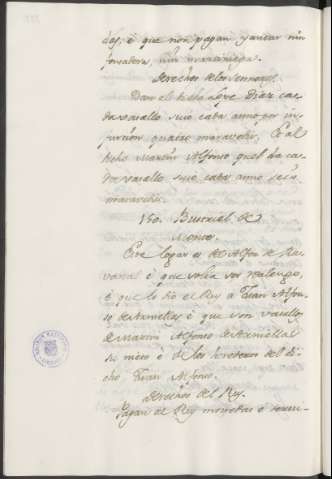 des, é que non pagan yantar nin
fonsadera, nin martiniega.
Derechos de los Sennores.
Dan el dicho Lope Diaz cada
vasallo suio cada anno por in-
furcion quatro maravedis. E al
dicho Martin Alfonso quel da ca-
da vasallo suio cada anno seis
maravedis.
Buscial de
Este logar es de Alfon de
é que solia ser realengo,
é que lo dio el Rey a Juan Alfon-
so de é que son vasallos
de Martin Alfonso de
su nieto é de los herederos del di-
cho Juan Alfonso.
Derechos del Rey.
Pagan al Rey monedas e servi-